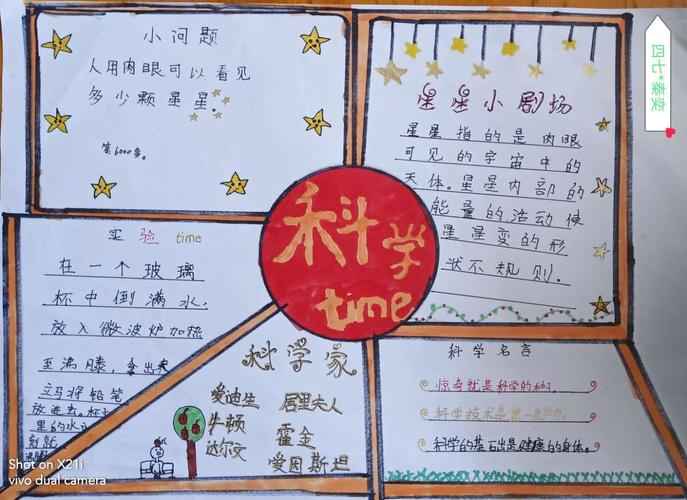 小问题
人用肉眼可以看见
多少颗星星。
答6000多。
星星小剧场
星星指的是肉眼
可见的宇宙中的
天体。星星内部的
能量的活动使
星星变的形
状不规则。
四七
科学
time
实验time
在一个玻璃
杯中倒满水,
放入微波炉加热
至沸腾,拿出来
立马将铅笔
放进去。杯
里的水
科学家
爱迪生 居里夫人
牛顿 霍金
达尔文 爱因斯坦
科学名言
惊奇就是科学的
科学技术是第一
科学的基石出是健康的身体。
Shot on X21i
vivo dual camera